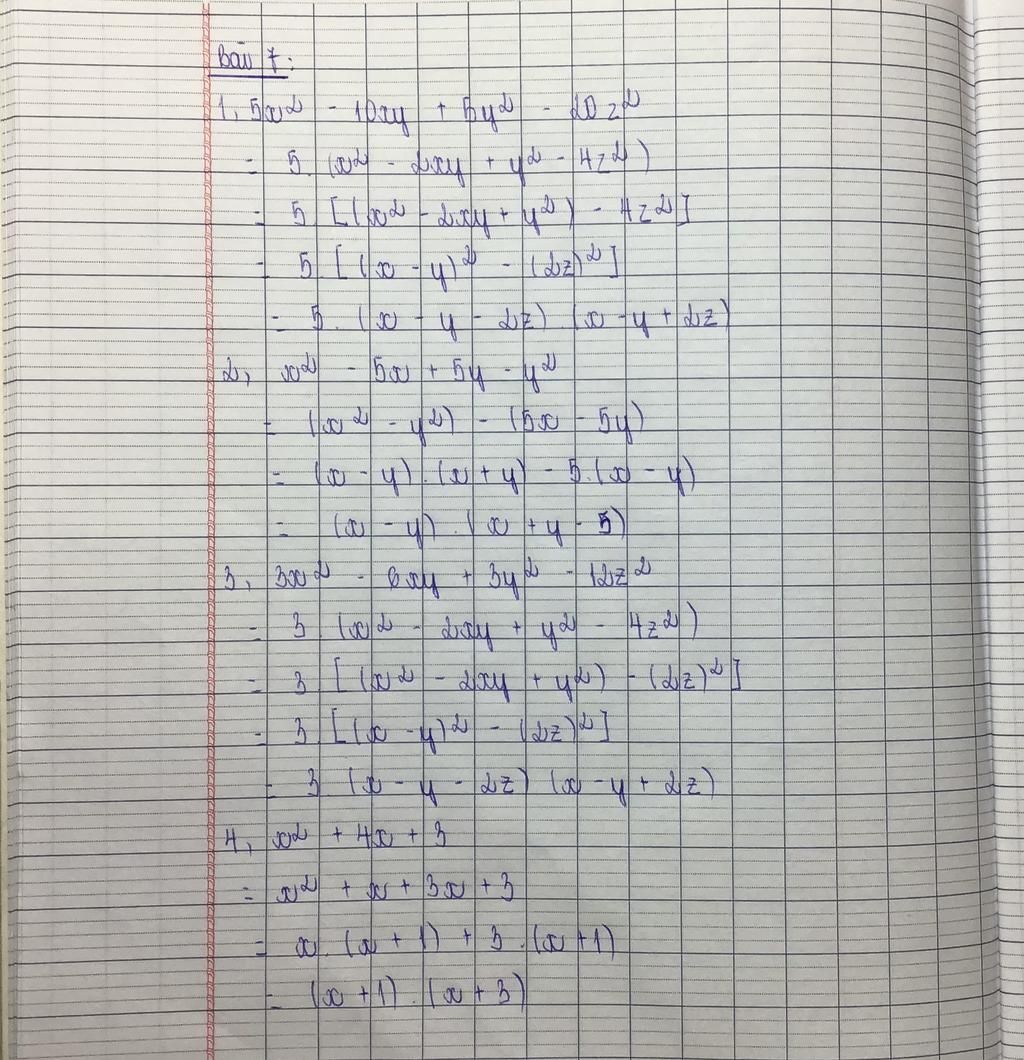 Bài 7:
1, 5x² - 10xy + 5y² - 20z²
= 5. (x² - 2xy + y² - 4z²)
= 5 [(x² - 2xy + y²) - 4z²]
= 5. [(x - y)² - (2z)²]
= 5. (x - y - 2z). (x - y + 2z)
2, x² - 5x + 5y - y²
= (x² - y²) - (5x - 5y)
= (x - y). (x + y) - 5.(x - y)
= (x - y). (x + y - 5)
3, 3x² - 6xy + 3y² - 12z²
= 3 (x² - 2xy + y² - 4z²)
= 3 [(x² - 2xy + y²) - (2z)²]
= 3 [(x - y)² - (2z)²]
= 3 (x - y - 2z) (x - y + 2z)
4, x² + 4x + 3
= x² + x + 3x + 3
= x. (x + 1) + 3. (x + 1)
= (x + 1). (x + 3)